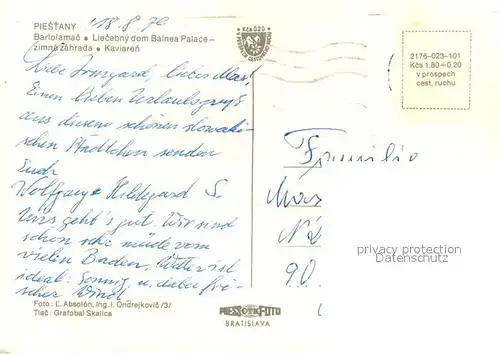 PIEŠŤANY
'18.8.76
Bartolamač • Liečebný dom Balnea Palace –
zimná záhrada • Kaviareň
Kčs 0.20
2176-023-101
Kčs 1.80 + 0.20
v prospech
cest. ruchu
Liebe Irmgard, lieber Max!
Einen lieben Urlaubsgruß
aus diesem schönen slowaki-
schen Städtchen senden
Euch
Wolfgang + Hildegard S.
Uns geht's gut. Wir sind
schon sehr müde vom
vielen Baden. Wetter ist
ideal. Sonnig u. dabei fri-
scher Wind.
Familie
Max
90
privacy protection
AKPool.de
Foto: Ľ. Absolón, Ing. I. Ondrejkovič /3/
Tlač: Grafobal Skalica
PRESSFOTO
BRATISLAVA